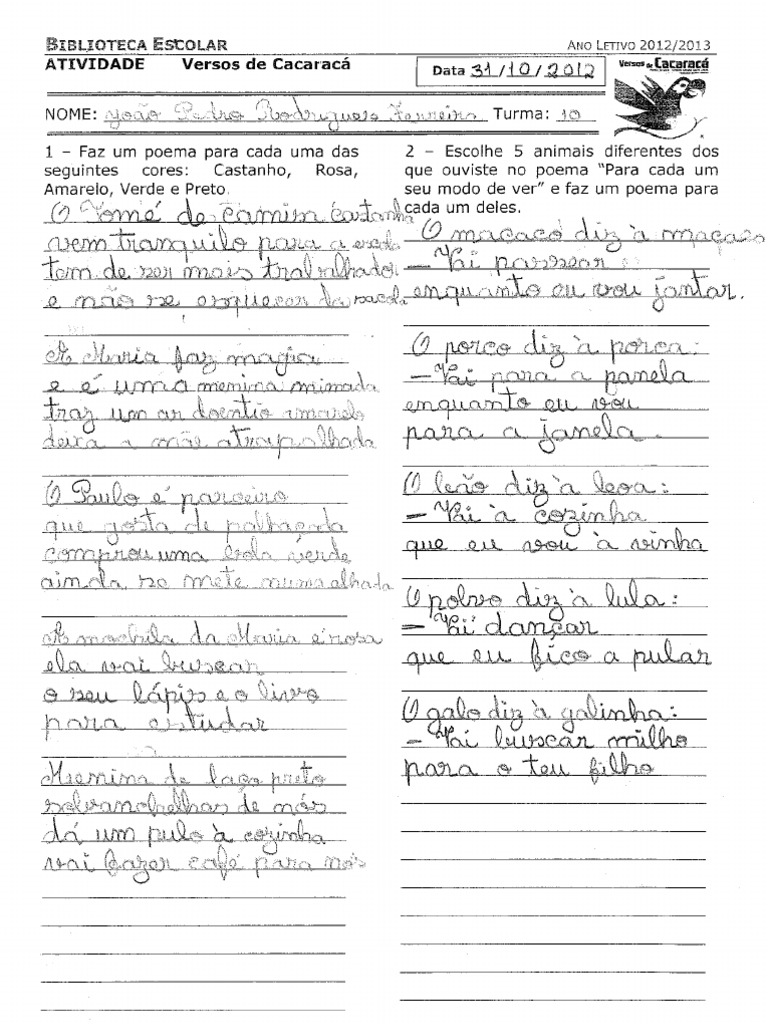 BIBLIOTECA ESCOLAR
ANO LETIVO 2012/2013
ATIVIDADE Versos de Cacaracá
Data 31/10/2012
Versos de Cacaracá
NOME: João Pedro Rodrigues Ferreira Turma: 10
1 – Faz um poema para cada uma das
seguintes cores: Castanho, Rosa,
Amarelo, Verde e Preto.
O Tomé de camisa castanha
vem tranquilo para a escola
tem de ser mais trabalhador
e não se esquecer da sacola
A Maria faz magia
e é uma menina mimada
traz um ar doentio amarelo
deixa a mãe atrapalhada
O Paulo é parceiro
que gosta de palhaçada
comprou uma bola verde
ainda se mete numa alhada
A mochila da Maria é rosa
ela vai buscar
o seu lápis e o livro
para estudar
Menina de laço preto
de nós
dá um pulo à cozinha
vai fazer café para nós
2 – Escolhe 5 animais diferentes dos
que ouviste no poema "Para cada um
seu modo de ver" e faz um poema para
cada um deles.
O macaco diz à macaca
– Vai passear
enquanto eu vou jantar.
O porco diz à porca:
– Vai para a panela
enquanto eu vou
para a janela.
O leão diz à leoa:
– Vai à cozinha
que eu vou à vinha
O polvo diz à lula:
– Vai dançar
que eu fico a pular
O galo diz à galinha:
– Vai buscar milho
para o teu filho